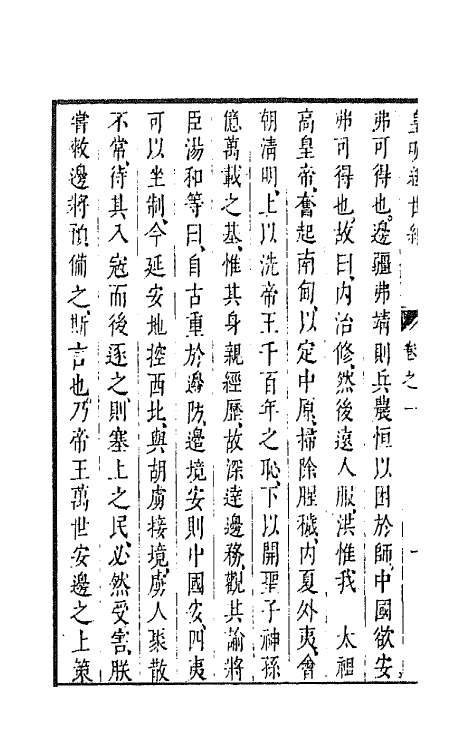 皇明經世編 卷之一 一
弗可得也。邊疆弗靖則兵農恒以困於師、中國欲安
弗可得也、故曰、內治修、然後遠人服、洪惟我 太祖
高皇帝、奮起南甸、以定中原、掃除腥穢、內夏外夷、會
朝清明、上以洗帝王千百年之恥、下以開聖子神孫
億萬載之基、惟其身親經歷、故深達邊務、觀其諭將
臣湯和等曰、自古重於邊防、邊境安則中國安、四夷
可以坐制、今延安地控西北、與胡虜接境、虜人聚散
不常、待其入寇而後逐之、則塞上之民、必然受害、朕
嘗敕邊將預備之、斯言也、乃帝王萬世安邊之上策